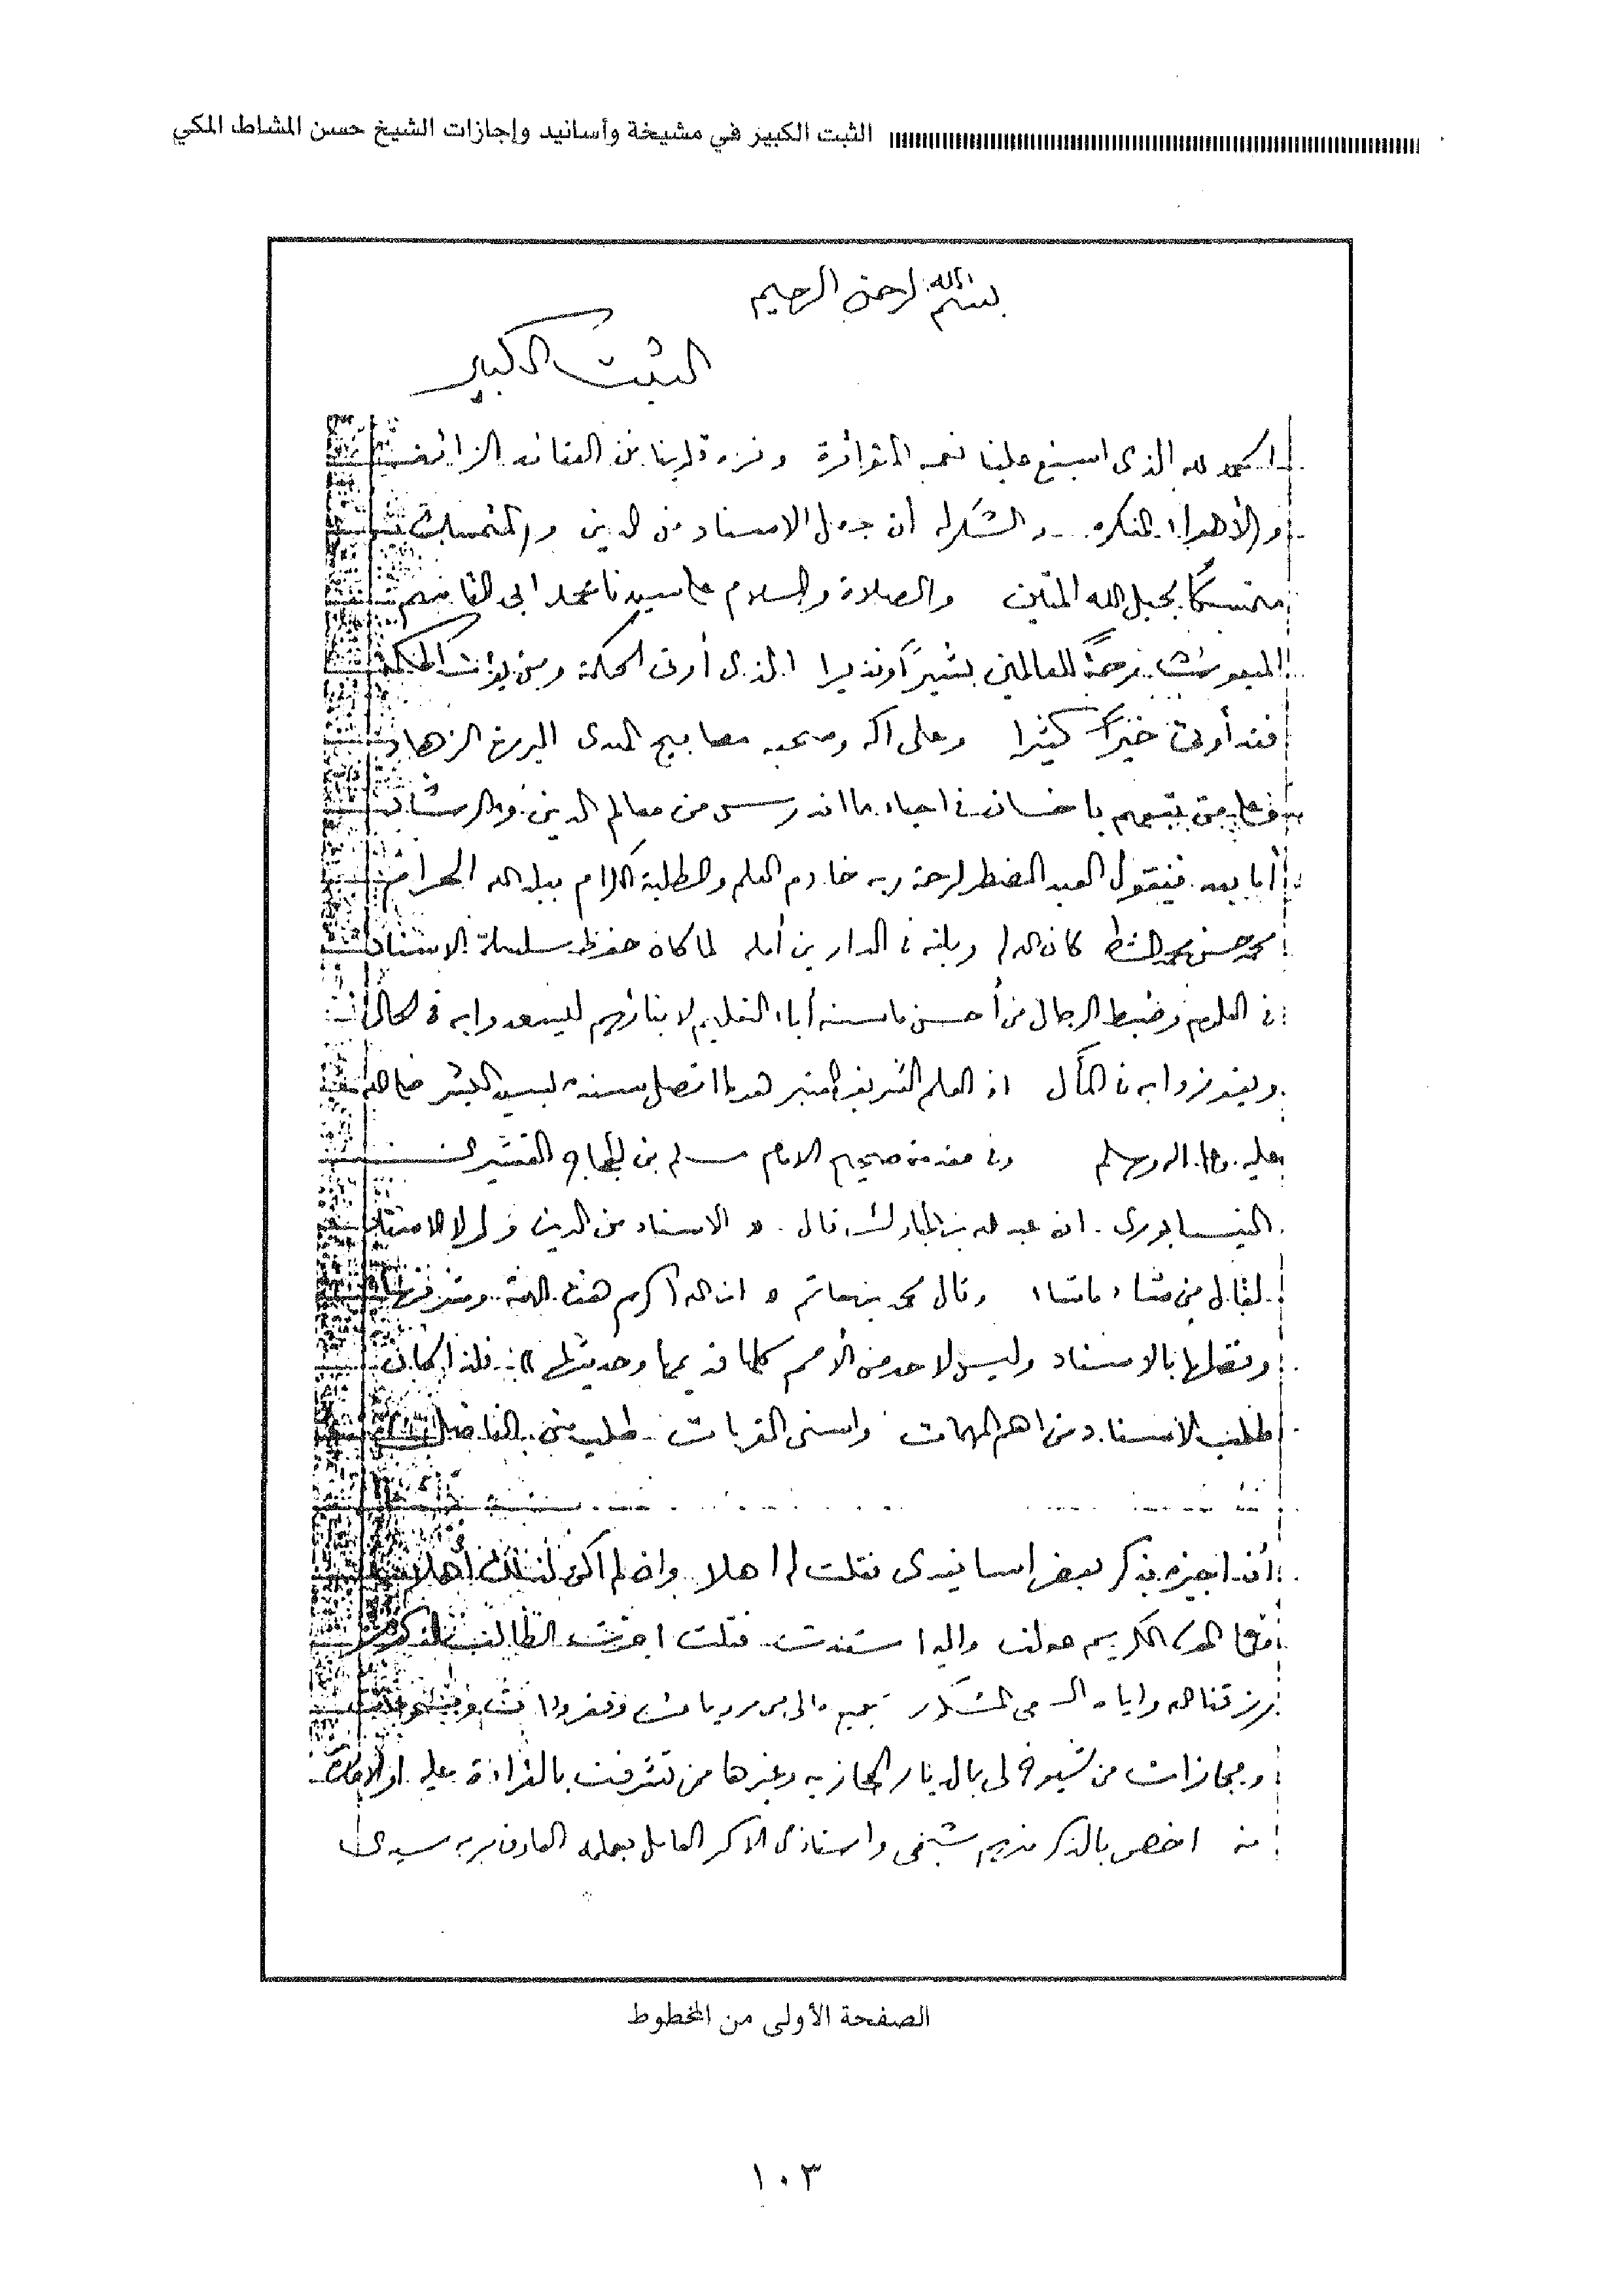 الثبت الكبير في مشيخة وأسانيد وإجازات الشيخ حسن المشاط المكي
بسم الله الرحمن الرحيم
الثبت الكبير
الحمد لله الذى اسبغ علينا نعمه المتواترة ونزه قلوبنا من العقائد الزائفة
والأهواء المنكره والشكر له أن جعل الاسناد من الدين والمتمسك
متمسكًا بحبل الله المتين والصلاة والسلام على سيدنا محمد ابى القاسم
المبعوث رحمةً للعالمين بشيرًا ونذيرا الذى أوتى الحكمة ومن يؤت الحكمة
فقد أوتى خيرًا كثيرا وعلى اله وصحبه مصابيح الهدى
وعلى من يتبعهم باحسان فى احياء ما اندرس من معالم الدين والرشاد
أما بعد فيقول العبد المضطر لرحمة ربه خادم العلم والطلبة الكرام ببلد الله الحرام
محمد حسن محمد المشاط كان الله له وبلغه فى الدارين أمله لما كان حفظ سلسلة الاسناد
فى العلوم وضبط الرجال من أحسن ما سنه أباء التعليم لابنائهم ليسعدوا به فى الحال
ويفوزوا به فى المأل اذ العلم الشريف المعتبر هو ما اتصل سنده لسيد البشر صلى الله
عليه وعلى اله وسلم وفى مقدمة صحيح الامام مسلم بن الحجاج القشيرى
النيسابورى ان عبد الله بن المبارك قال « الاسناد من الدين ولولا الاسناد
لقال من شاء ما شاء وقال محمد بن حاتم « ان الله اكرم هذه الامة وشرفها
وفضلها بالاسناد وليس لاحد من الأمم كلها قديمها وحديثها » فلذا كان
طلب الاسناد من اهم المهمات واسنى القربات طلب منى الفاضل
أن اجيزه بذكر بعض اسانيدى فقلت له اهلا وان لم اكن لذلك أهلا
وعلى الله الكريم عولت واليه استندت فقلت اجزت الطالب المذكور
رزقنا الله واياه السعى المشكور بجميع مالى من مرويات ومقروءات
ومجازات من شيوخى بالديار الحجازيه وغيرها ممن تشرفت بالقراءة عليه او الاجازة
منه اخص بالذكر منهم شيخى واستاذى الاكبر العامل بعلمه العارف بربه سيدى
الصفحة الأولى من المخطوط
١٠٣